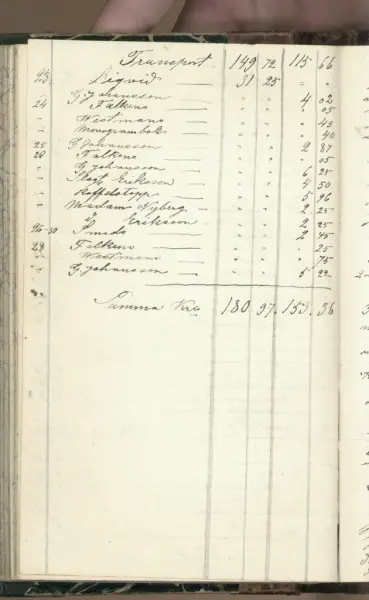 Transport. 149 72 115 66
23 Liqvid 31 25 " "
" G Johansson " " 4 02
24 Falkens " " " 05
" Westmans " " " 45
" Monogrambok " " " 40
25 G Johansson " " 2 87
28 Falkens " " " 05
" G Johansson " " 6 25
" Eriksson " " 4 50
" Koffelstopp " " 5 96
" Madam Nyberg " " 2 25
" Eriksson " " 2 25
26-30 Smeds " " 2 45
28 Falkens " " " 25
" Westmans " " " 75
" G Johansson " " 5
Summa Kr 180 97. 153. 36